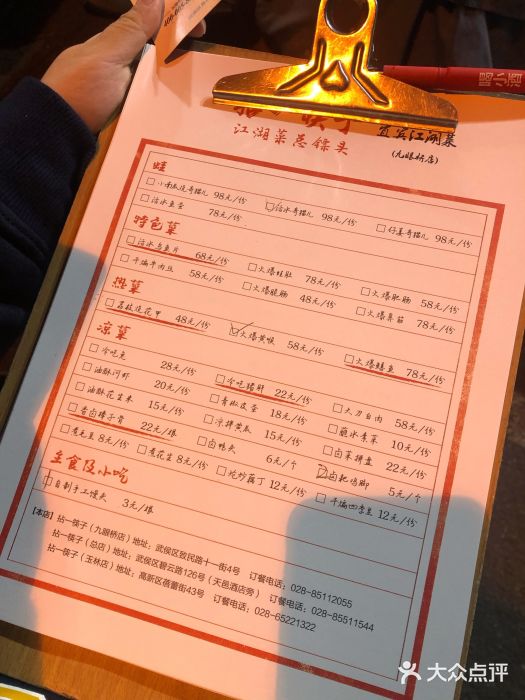 喝小酒
宜宾江湖菜
江湖菜总镖头
(九眼桥店)
蛙
口味哥猫儿 98元/份
泡水哥猫儿 98元/份
仔姜哥猫儿 98元/份
泡水鱼蛋 78元/份
特色菜
泡水乌鱼片 68元/份
火爆肚肚 78元/份
火爆肥肠 58元/份
干煸牛肉豆 58元/份
火爆脆肠 48元/份
火爆鼻筋 78元/份
招菜
荔枝味花甲 48元/份
火爆黄喉 58元/份
火爆鳝鱼 78元/份
凉菜
冷吃兔 28元/份
冷吃猪肝 22元/份
大刀白肉 58元/份
油酥河虾 20元/份
青椒皮蛋 18元/份
脆水素菜 10元/份
油酥花生米 15元/份
凉拌黄瓜 15元/份
卤菜拼盘 22元/份
香卤棒子骨 22元/根
卤鸭头 6元/个
卤耙鸡脚 5元/个
煮毛豆 8元/份
煮花生 8元/份
炝炒藕丁 12元/份
干煸四季豆 12元/份
主食及小吃
自制手工馒头 3元/根
【本店】
拈一筷子(九眼桥店)地址:武侯区致民路十一街4号 订餐电话:028-85112055
拈一筷子(总店)地址:武侯区碧云路126号(天邑酒店旁) 订餐电话:028-85511544
拈一筷子(玉林店)地址:高新区蓓蕾街43号 订餐电话:028-65221322
大众点评